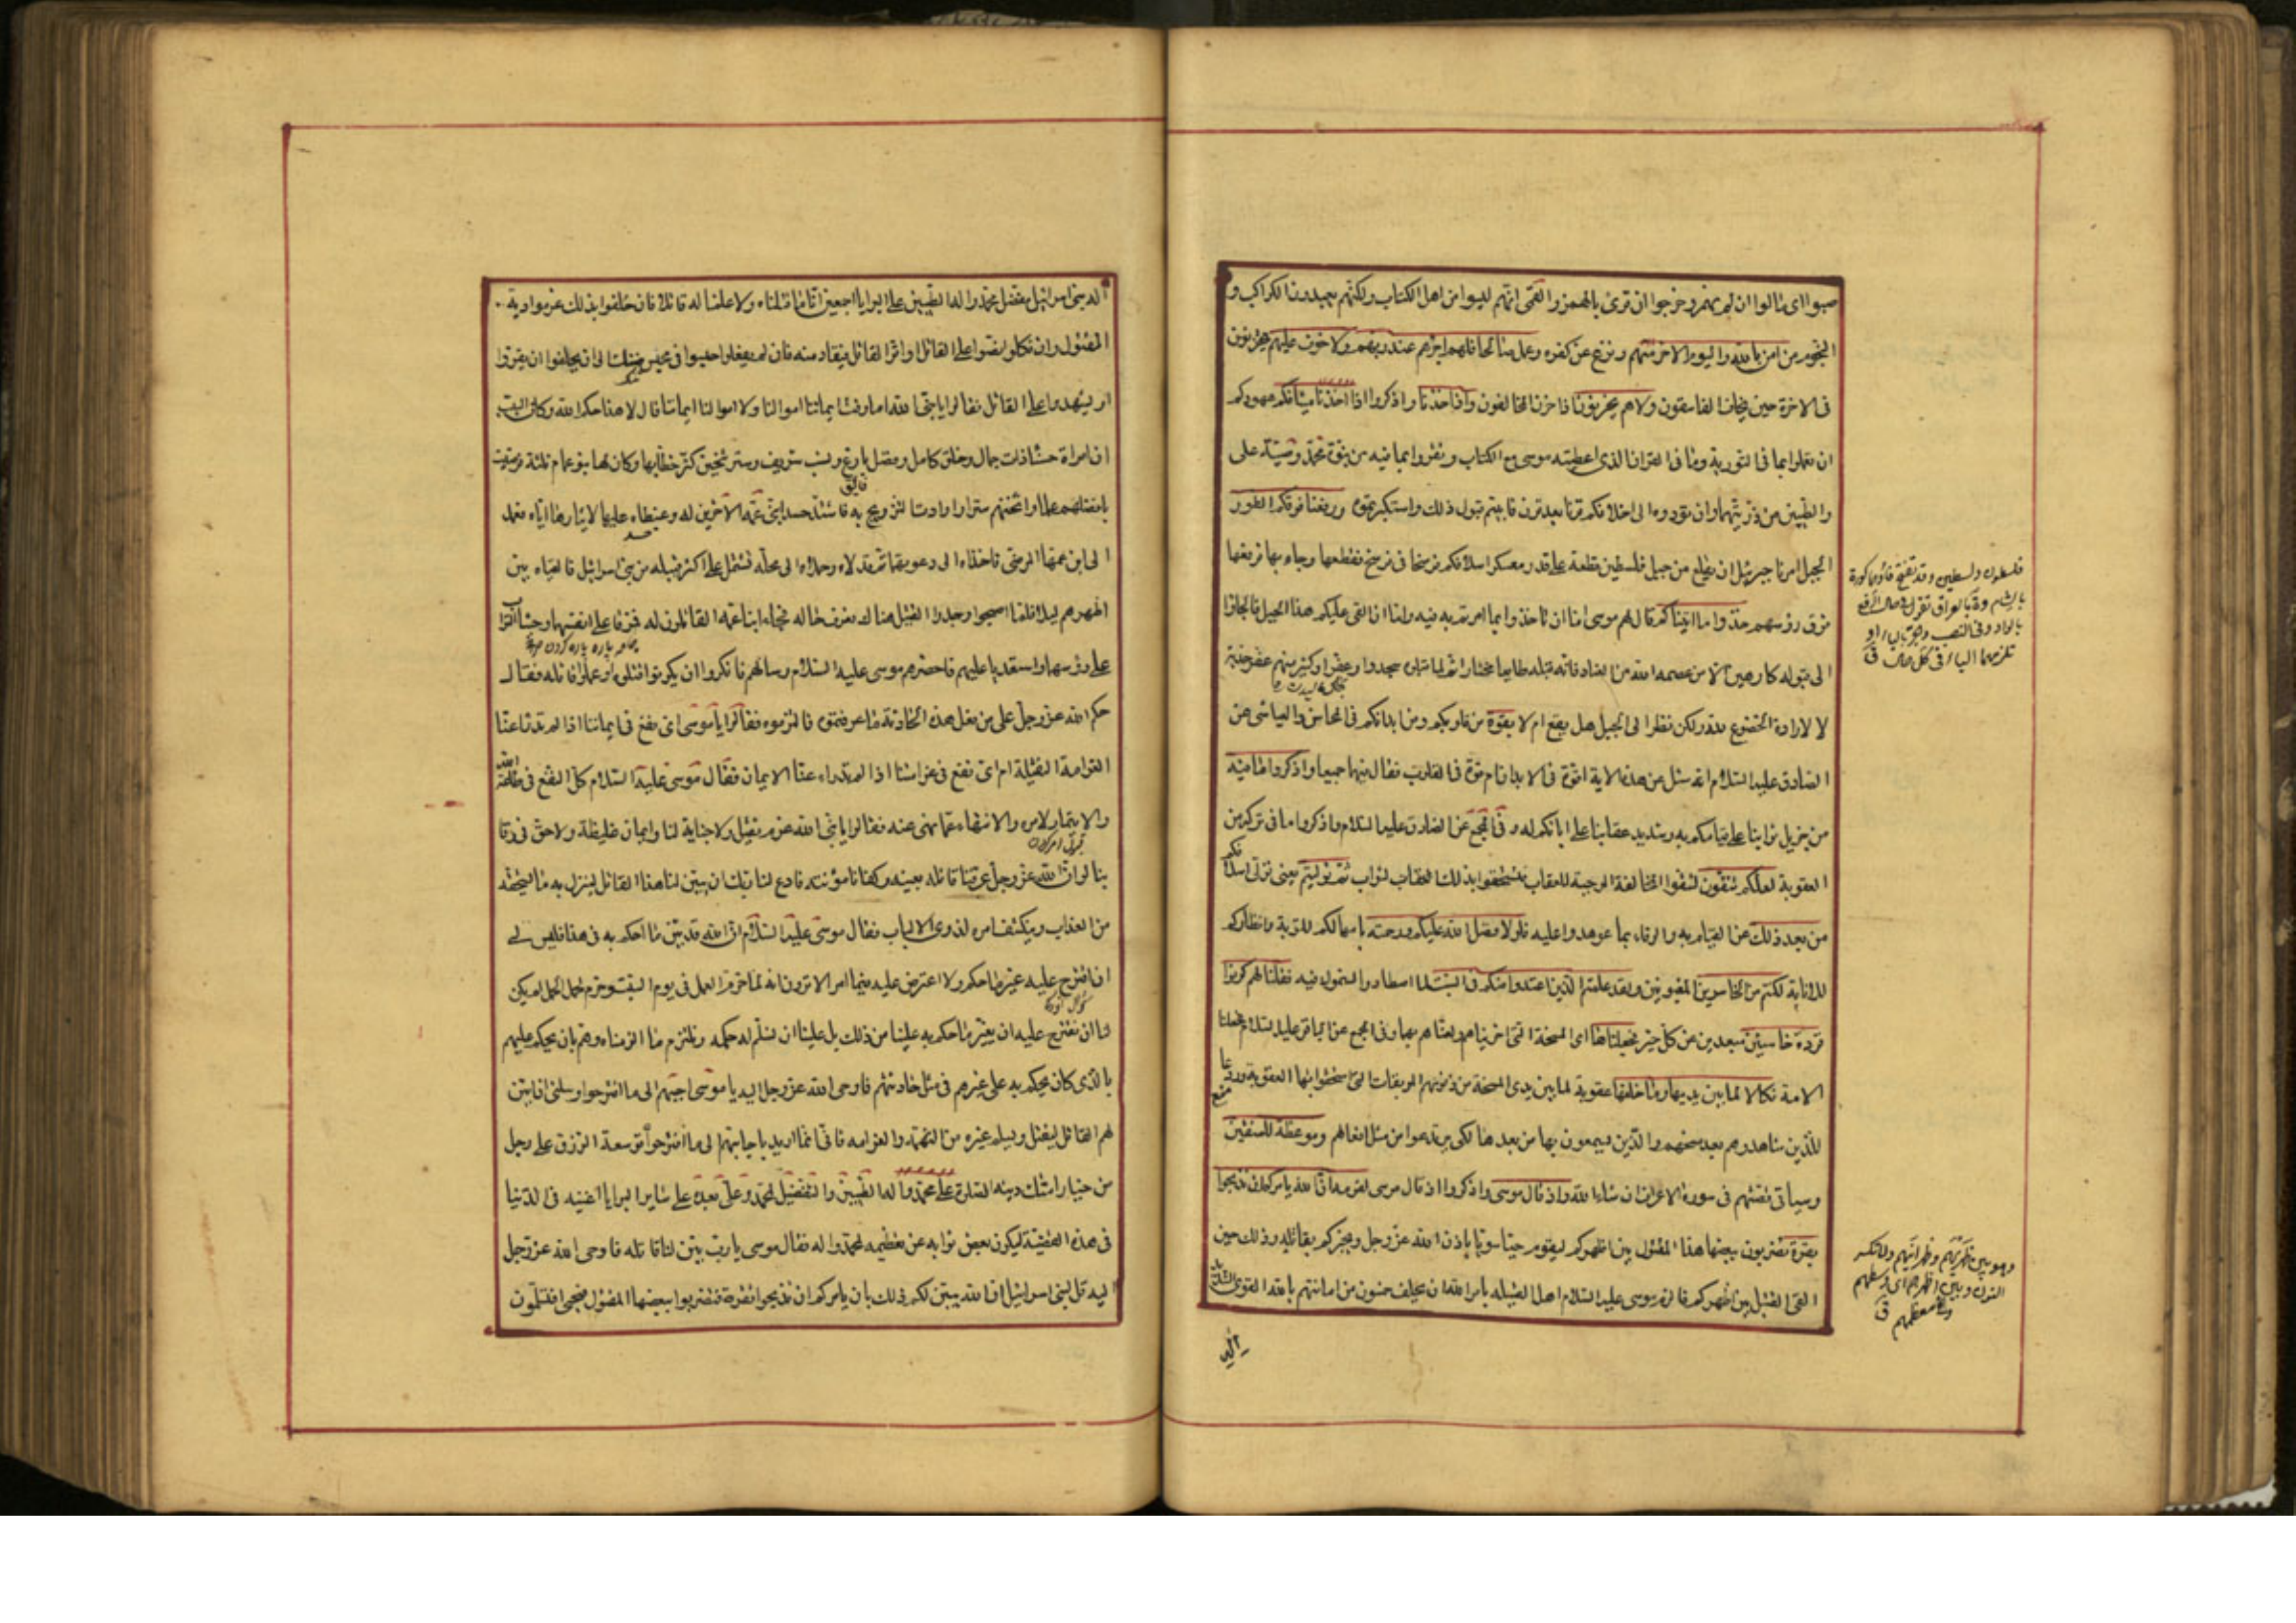 صبوا اى مالوا ان لم يهمز وخرجوا ان قرئ بالهمز والقمى انهم ليسوا من اهل الكتاب ولكنهم يعبدون الكواكب و
النجوم من امن بالله واليوم الاخر منهم ونزع عن كفره وعمل صالحا فلهم اجرهم عند ربهم ولا خوف عليهم
فى الاخرة حين يخاف الفاسقون ولا هم يحزنون اذا حزن المخالفون واذ اخذنا واذكروا اذا اخذنا ميثاقكم عهودكم
ان تعملوا بما فى التورية وما فى الفرقان الذى اعطيته موسى مع الكتاب وتقروا بما فيه من نبوة محمد ووصية على
والطيبين من ذريتهما وان تؤدوه الى اخلافكم قرنا بعد قرن فابيتم قبول ذلك واستكبرتموه ورفعنا فوقكم الطور
الجبل امرنا جبرئيل ان يقلع من جبل فلسطين قطعة على قدر معسكر اسلافكم فرسخا فى فرسخ فقطعها وجاء بها فرفعها
فوق رؤسهم خذوا ما اتيناكم قال لهم موسى اما ان تاخذوا بما امرتم به فيه واما ان القى عليكم هذا الجبل فالجاوا
الى قبوله كارهين الا من عصمه الله من العناد فانه قبله طايعا مختارا ثم لما قبلوه سجدوا وعفروا وكثير منهم عفر خديه
لا لارادة الخضوع لله ولكن نظرا الى الجبل هل يقع ام لا بقوة من قلوبكم ومن ابدانكم فى المحاسن والعياشى عن
الصادق عليه السلام انه سئل عن هذه الاية اقوة فى الابدان ام قوة فى القلوب فقال فيهما جميعا واذكروا ما فيه
من جزيل ثوابنا على قيامكم به وشديد عقابنا على ابائكم له وفى المجمع عن الصادق عليه السلام واذكروا ما فى تركه من
العقوبة لعلكم تتقون لتتقوا المخالفة الموجبة للعقاب فتستحقوا بذلك الثواب ثم توليتم يعنى تولى اسلافكم
من بعد ذلك عن القيام به والوفاء بما عوهدوا عليه فلولا فضل الله عليكم ورحمته بامهالكم للتوبة وانظاركم
للانابة لكنتم من الخاسرين المغبونين ولقد علمتم الذين اعتدوا منكم فى السبت لما اصطادوا السموك فيه فقلنا لهم كونوا
قردة خاسئين مبعدين عن كل خير فجعلناها اى المسخة التى اخزيناهم ولعناهم بها وفى المجمع عن الباقر عليه السلام فجعلنا
الامة نكالا لما بين يديها وما خلفها عقوبة لما بين يدى المسخة من ذنوبهم الموبقات التى استحقوا بها العقوبة وردعا
للذين شاهدوهم بعد مسخهم والذين يسمعون بها من بعدها لكى يرتدعوا عن مثل افعالهم وموعظة للمتقين
وسياتى قصتهم فى سورة الاعراف ان شاء الله واذ قال موسى واذكروا اذ قال موسى لقومه ان الله يامركم ان تذبحوا
بقرة تضربون ببعضها هذا المقتول بين اظهركم ليقوم حيا سويا باذن الله عز وجل ويخبركم بقاتله وذلك حين
القى القتيل بين اظهركم فالزم موسى عليه السلام اهل القبيلة بامر الله ان يحلف خمسون من اماثلهم بالله القوى الشديد
اله
فلسطون وفلسطين وقد تفتح فاؤهما كورة
بالشام وة بالعراق تقول فى حال الرفع
بالواو وفى النصب والجر بالياء او
تلزمها الياء فى كل حال ق
وهو بين ظهريهم وظهرانيهم ولا تكسر
النون وبين اظهرهم اى وسطهم
وفى معظمهم ق
اله بنى اسرائيل مفضل محمد واله الطيبين على البرايا اجمعين انا ما قتلناه ولا علمنا له قاتلا فان حلفوا بذلك غرموا دية
المقتول وان نكلوا نصوا على القاتل او اقر القاتل فيقاد منه فان لم يفعلوا حبسوا فى محبس ضنك الى ان يحلفوا او يقروا
او يشهدوا على القاتل فقالوا يا نبى الله اما وقت ايماننا اموالنا ولا اموالنا ايماننا قال لا هذا حكم الله وكان السبب
ان امراة حسناء ذات جمال وخلق كامل وفضل بارع ونسب شريف وستر ثخين كثر خطابها وكان لها بنو اعمام ثلثة فرضيت
بافضلهم علما واثخنهم سترا وارادت التزويج به فاشتد حسد ابنى عمه الاخرين له وغبطاه عليها لايثارها اياه فعمدا
الى ابن عمها المرضى فاخذاه الى دعوتهما ثم قتلاه وحملاه الى محلة تشتمل على اكثر قبيلة من بنى اسرائيل فالقياه بين
اظهرهم ليلا فلما اصبحوا وجدوا القتيل هناك فعرف حاله فجاء ابنا عمه القاتلون له فمزقا على انفسهما وحثيا التراب
على رؤسهما واستعديا عليهم فاحضرهم موسى عليه السلام وسالهم فانكروا ان يكونوا قتلوه او علموا قاتله فقال
حكم الله عز وجل على من فعل هذه الحادثة ما عرفتموه فالتزموه فقالوا يا موسى اى نفع فى ايماننا اذا لم تدرا عنا
الغرامة الثقيلة ام اى نفع فى غرامتنا اذا لم تدرا عنا الايمان فقال موسى عليه السلام كل النفع فى طاعة الله
والايتمار لامره والانتهاء عما نهى عنه فقالوا يا نبى الله غرم ثقيل ولا جناية لنا وايمان غليظة ولا حق فى رقا
بنا لو ان الله عز وجل عرفنا قاتله بعينه وكفانا مؤنته فادع لنا ربك ان يبين لنا هذا القاتل لينزل به ما يستحقه
من العذاب وينكشف امره لذوى الالباب فقال موسى عليه السلام ان الله قد بين ما احكم به فى هذا فليس لى
ان اقترح عليه غير ما حكم ولا اعترض عليه فيما امر الا ترون انه لما حرم العمل فى يوم السبت وحرم لحم الجمل لم يكن
لنا ان نقترح عليه ان يغير ما حكم به علينا من ذلك بل علينا ان نسلم له حكمه ونلتزم ما الزمناه وهم بان يحكم عليهم
بالذى كان يحكم به على غيرهم فى مثل حادثتهم فاوحى الله عز وجل اليه يا موسى اجبهم الى ما اقترحوا وسلنى ان ابين
لهم القاتل ليقتل ويسلم غيره من التهمة والغرامه فانى انما اريد باجابتهم الى ما اقترحوا توسعة الرزق على رجل
من خيار امتك دينه الصلوة على محمد واله الطيبين والتفضيل لمحمد وعلى بعده على سائر البرايا اغنيه فى الدنيا
فى هذه القضية ليكون بعض ثوابه عن تعظيمه لمحمد واله فقال موسى يا رب بين لنا قاتله فاوحى الله عز وجل
اليه قل لبنى اسرائيل ان الله يبين لكم ذلك بان يامركم ان تذبحوا بقرة فتضربوا ببعضها المقتول فيحيى افتسلمون